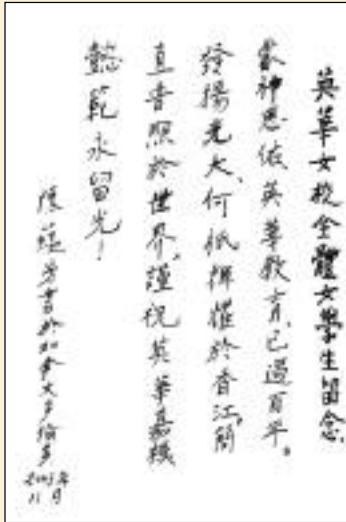 英華女校全體女學生留念
蒙神恩佑、英華教育、已過百年。
發揚光大、何祇輝耀於香江。簡
直普照於世界。謹祝英華嘉模
懿範永留光！
陳 芳書於加拿大多倫多
年
11月